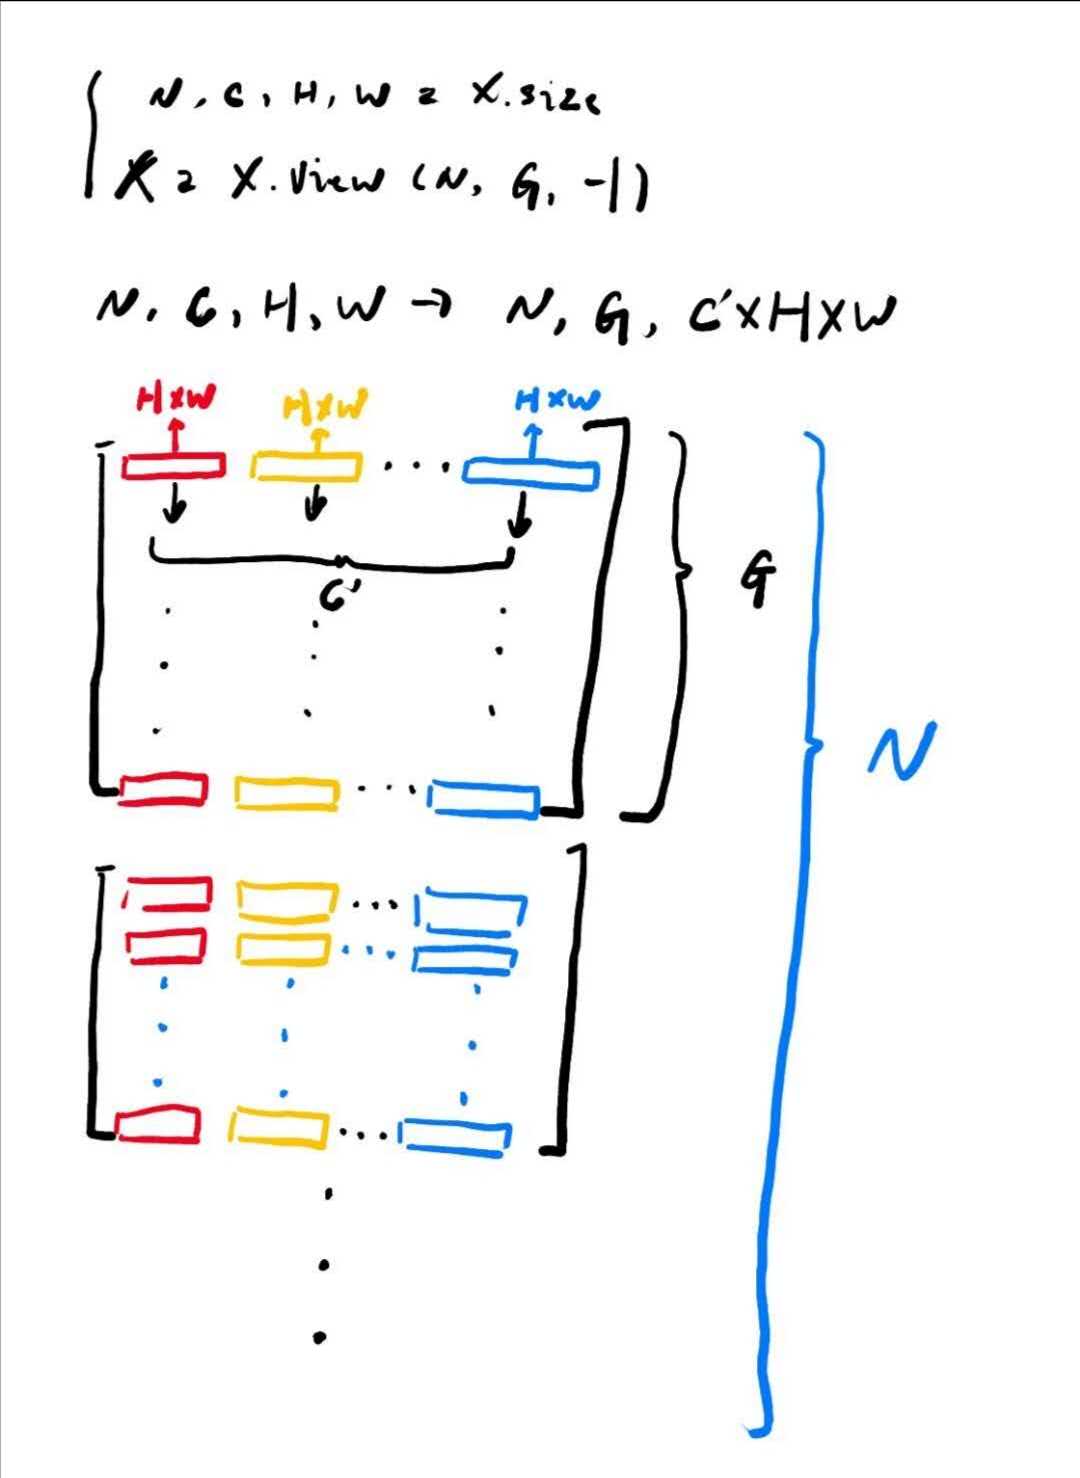 N, C, H, W = X.size
X = X.view (N, G, -1)
N, C, H, W → N, G, C'×H×W
H×W H×W H×W
C'
G
N